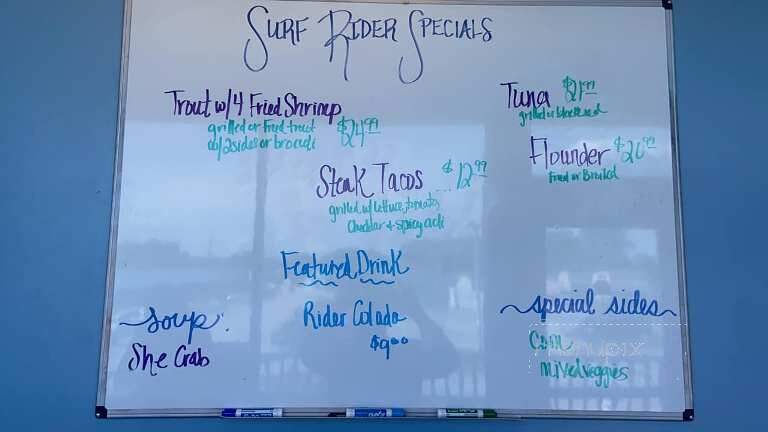 Surf Rider Specials
Trout w/4 Fried Shrimp
grilled or Fried trout
w/2 sides or broccoli $24.99
Tuna $21.99
grilled or blackened
Flounder $20.99
Fried or Broiled
Steak Tacos... $12.99
grilled w/lettuce, tomato,
cheddar + spicy aioli
Featured Drink
Rider Colada
$9.00
Soup:
She Crab
special sides
Corn
mixed veggies